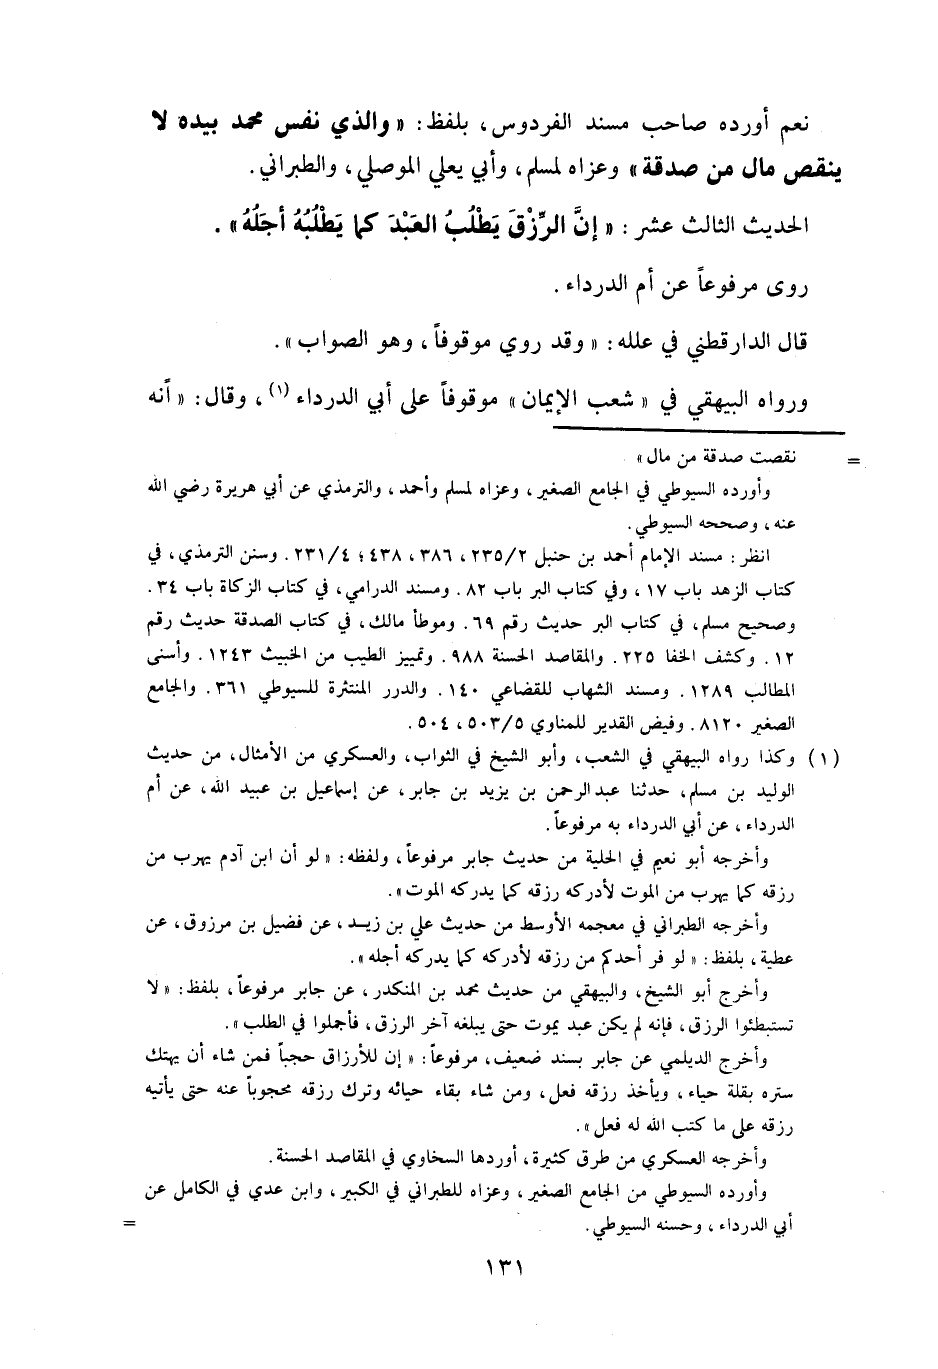 نعم أورده صاحب مسند الفردوس، بلفظ: «والذي نفس محمد بيده لا
ينقص مال من صدقة» وعزاه لمسلم، وأبي يعلي الموصلي، والطبراني.
الحديث الثالث عشر: «إنَّ الرِّزْقَ يَطْلُبُ العَبْدَ كما يَطْلُبُهُ أجَلُهُ».
روى مرفوعاً عن أم الدرداء.
قال الدارقطني في علله: «وقد روي موقوفاً، وهو الصواب».
ورواه البيهقي في «شعب الإيمان» موقوفاً على أبي الدرداء (١)، وقال: «أنه
= نقصت صدقة من مال»
وأورده السيوطي في الجامع الصغير، وعزاه لمسلم وأحمد، والترمذي عن أبي هريرة رضي الله
عنه، وصححه السيوطي.
انظر: مسند الإمام أحمد بن حنبل ٢٣٥/٢، ٣٨٦، ٤٣٨؛ ٢٣١/٤. وسنن الترمذي، في
كتاب الزهد باب ١٧، وفي كتاب البر باب ٨٢. ومسند الدرامي، في كتاب الزكاة باب ٣٤.
وصحيح مسلم، في كتاب البر حديث رقم ٦٩. وموطأ مالك، في كتاب الصدقة حديث رقم
١٢. وكشف الخفا ٢٢٥. والمقاصد الحسنة ٩٨٨. وتمييز الطيب من الخبيث ١٢٤٣. وأسنى
المطالب ١٢٨٩. ومسند الشهاب للقضاعي ١٤٠. والدرر المنتثرة للسيوطي ٣٦١. والجامع
الصغير ٨١٢٠. وفيض القدير للمناوي ٥٠٣/٥، ٥٠٤.
(١) وكذا رواه البيهقي في الشعب، وأبو الشيخ في الثواب، والعسكري من الأمثال، من حديث
الوليد بن مسلم، حدثنا عبدالرحمن بن يزيد بن جابر، عن إسماعيل بن عبيد الله، عن أم
الدرداء، عن أبي الدرداء به مرفوعاً.
وأخرجه أبو نعيم في الحلية من حديث جابر مرفوعاً، ولفظه: «لو أن ابن آدم يهرب من
رزقه كما يهرب من الموت لأدركه رزقه كما يدركه الموت».
وأخرجه الطبراني في معجمه الأوسط من حديث علي بن زيد، عن فضيل بن مرزوق، عن
عطية، بلفظ: «لو فر أحدكم من رزقه لأدركه كما يدركه أجله».
وأخرج أبو الشيخ، والبيهقي من حديث محمد بن المنكدر، عن جابر مرفوعاً، بلفظ: «لا
تستبطئوا الرزق، فإنه لم يكن عبد يموت حتى يبلغه آخر الرزق، فأجملوا في الطلب».
وأخرج الديلمي عن جابر بسند ضعيف، مرفوعاً: «إن للأرزاق حجباً فمن شاء أن يهتك
ستره بقلة حياء، ويأخذ رزقه فعل، ومن شاء بقاء حيائه وترك رزقه محجوباً عنه حتى يأتيه
رزقه على ما كتب الله له فعل».
وأخرجه العسكري من طرق كثيرة، أوردها السخاوي في المقاصد الحسنة.
وأورده السيوطي من الجامع الصغير، وعزاه للطبراني في الكبير، وابن عدي في الكامل عن
أبي الدرداء، وحسنه السيوطي. =
١٣١